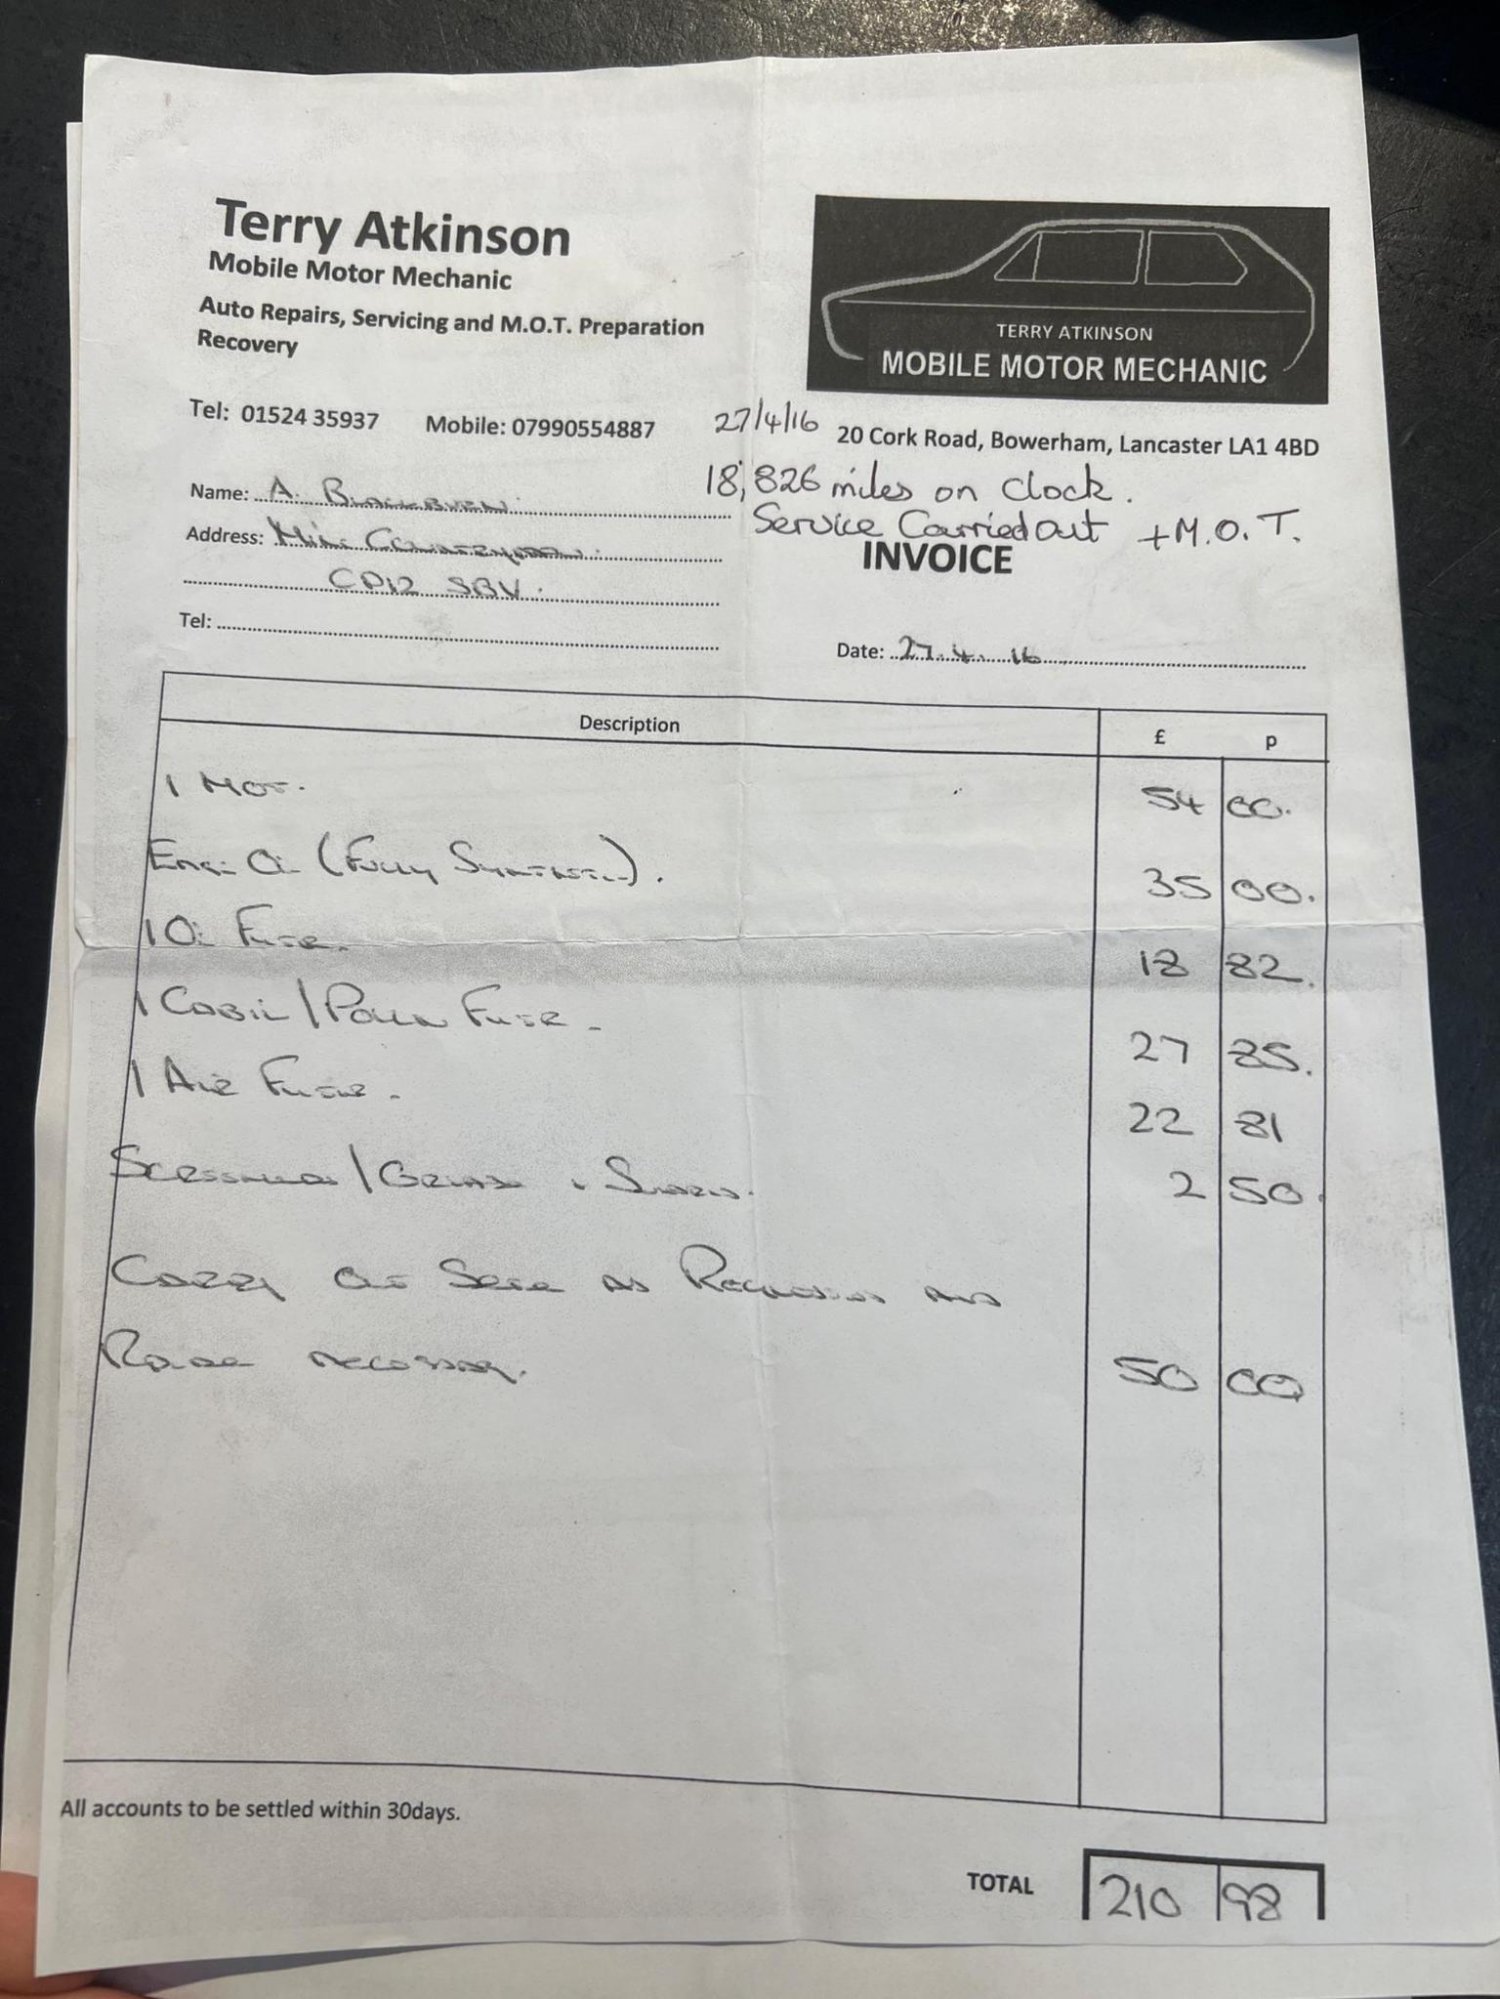 Terry Atkinson
Mobile Motor Mechanic
Auto Repairs, Servicing and M.O.T. Preparation
Recovery
TERRY ATKINSON
MOBILE MOTOR MECHANIC
Tel: 01524 35937 Mobile: 07990554887
27/4/16
20 Cork Road, Bowerham, Lancaster LA1 4BD
18,826 miles on clock.
Service Carried out + M.O.T.
INVOICE
Name: A. Blackburn
Address: Mini
SBV.
Tel:
Date: 27.4.16
Description £ p
1 MOT. 54 00.
(Fully Synthetic). 35 00.
1 Oil Filter. 18 82.
1 Cabin/Pollen Filter. 27 85.
1 Air Filter. 22 81
2 50.
Carry Out as Requested and
necessary. 50 00
All accounts to be settled within 30days.
TOTAL 210 98